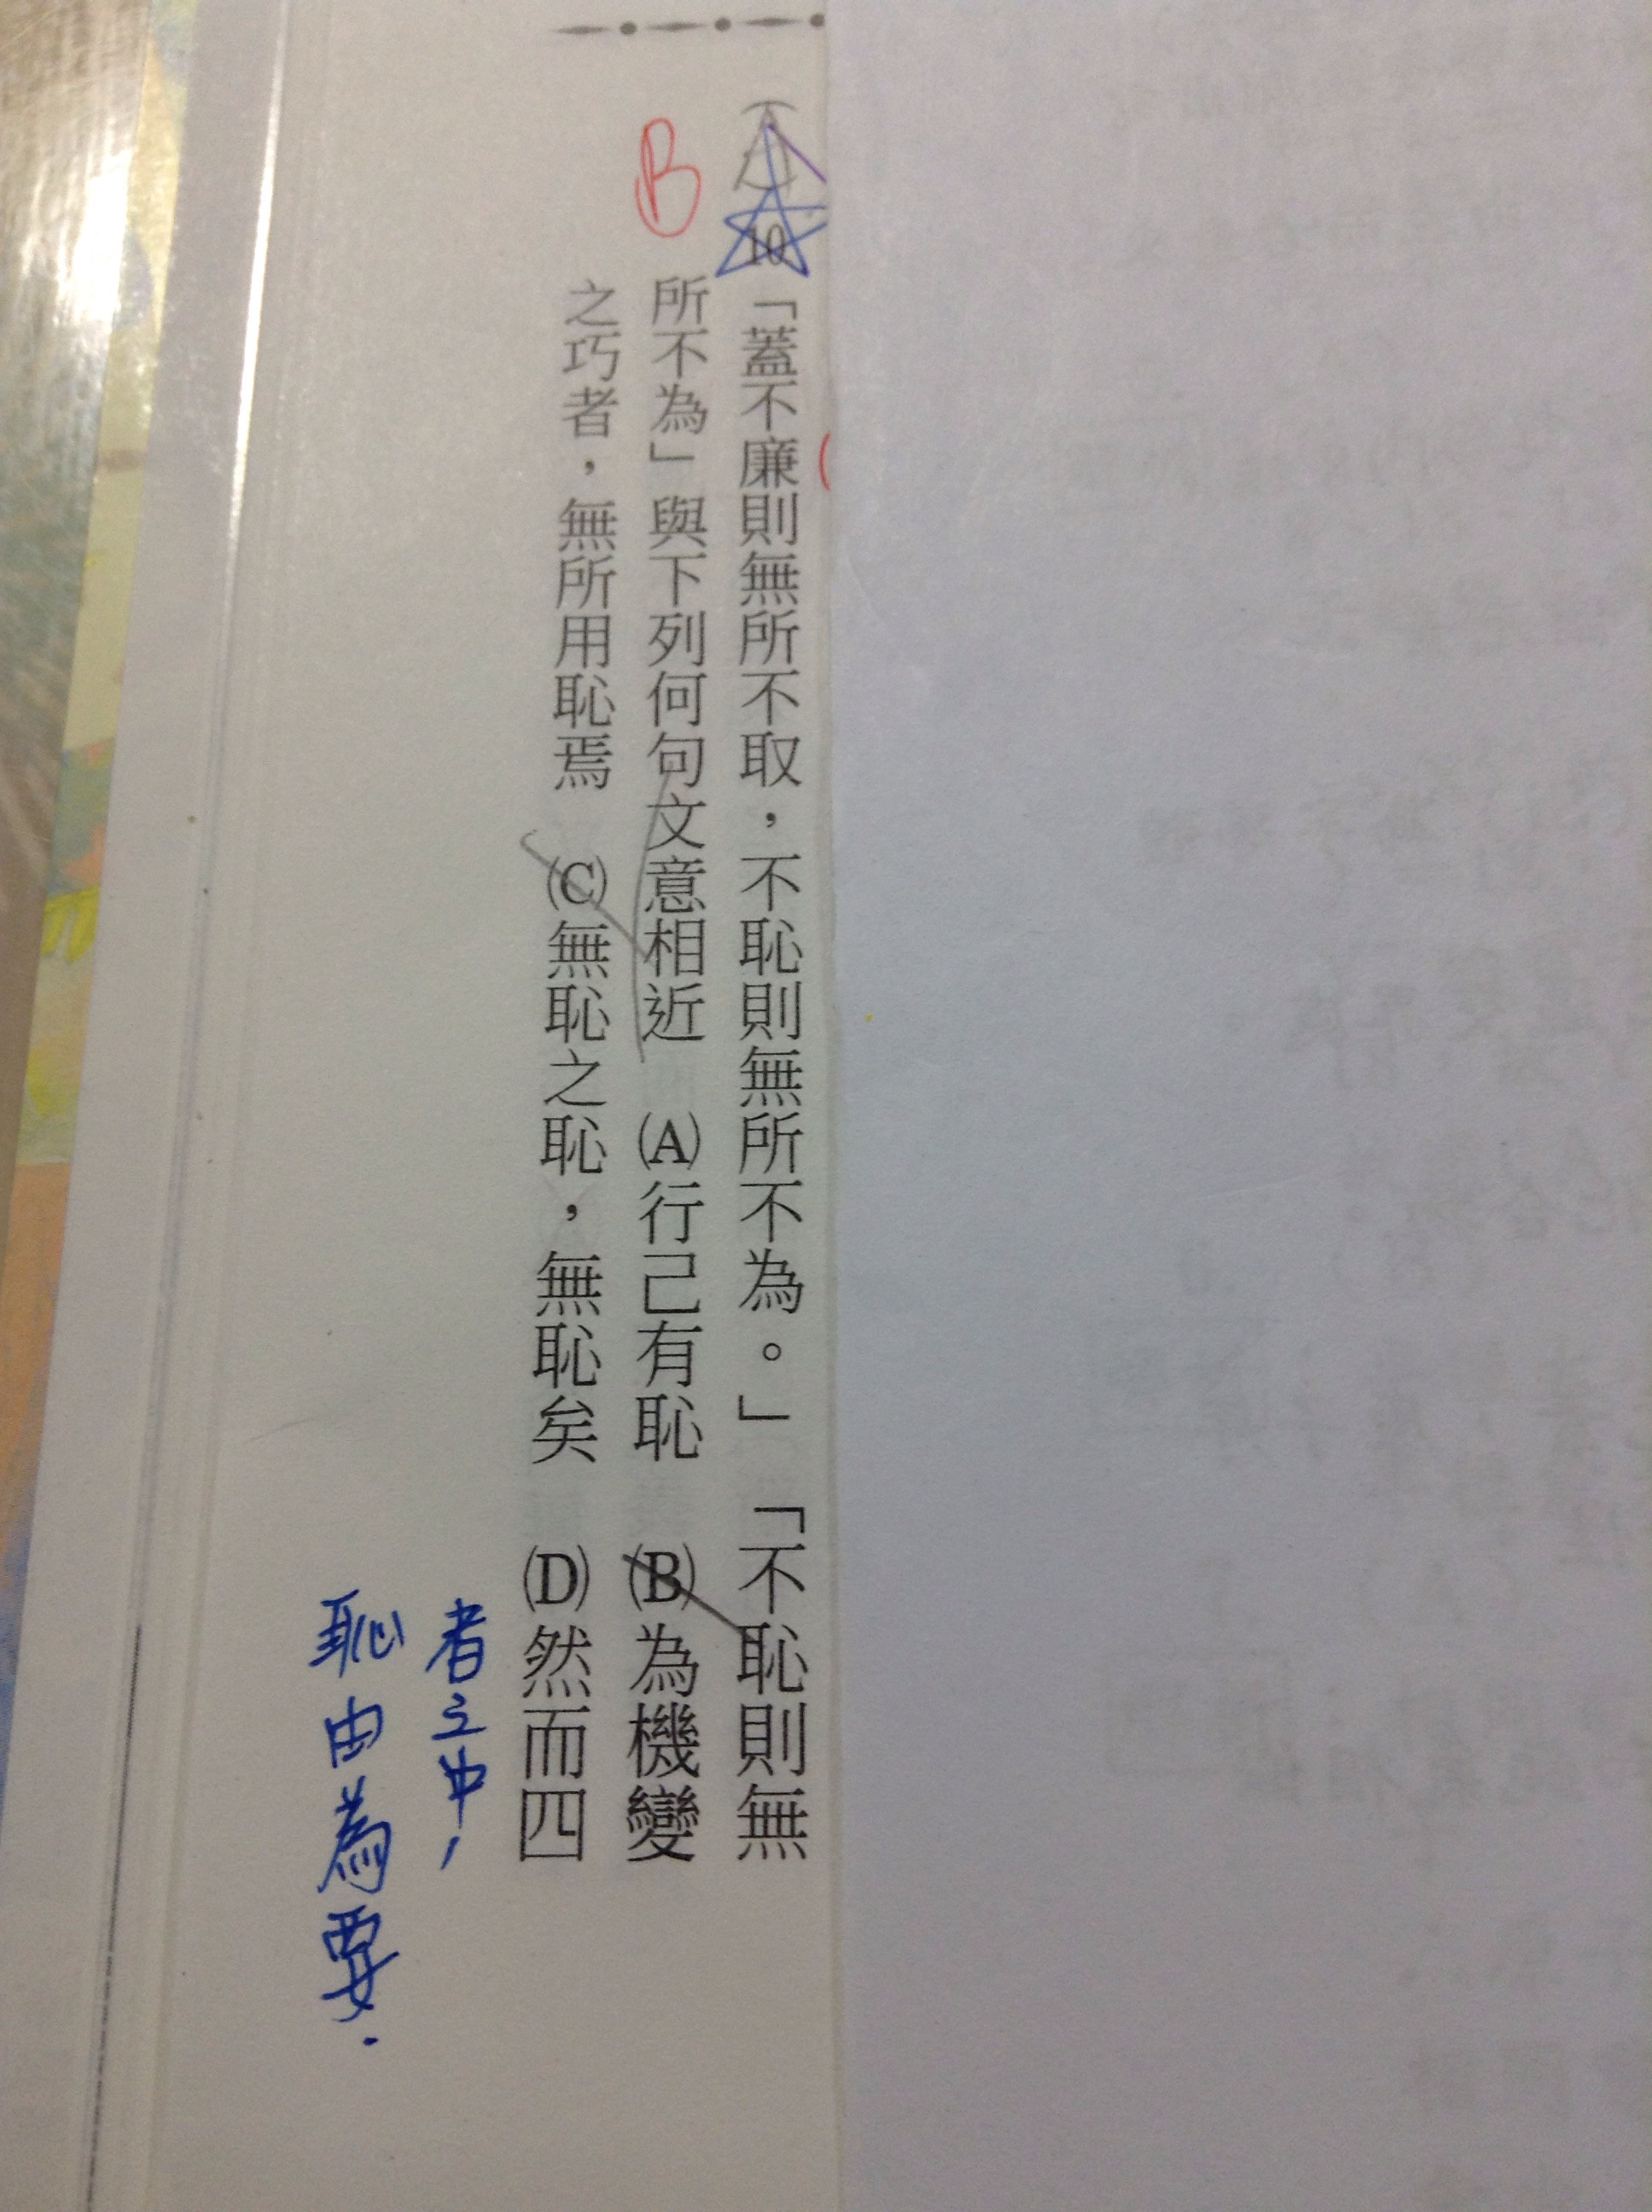 10「蓋不廉則無所不取，不恥則無所不為。」「不恥則無
所不為」與下列何句文意相近　(A)行己有恥　(B)為機變
之巧者，無所用恥焉　(C)無恥之恥，無恥矣　(D)然而四
者之中，
恥由為要.
B